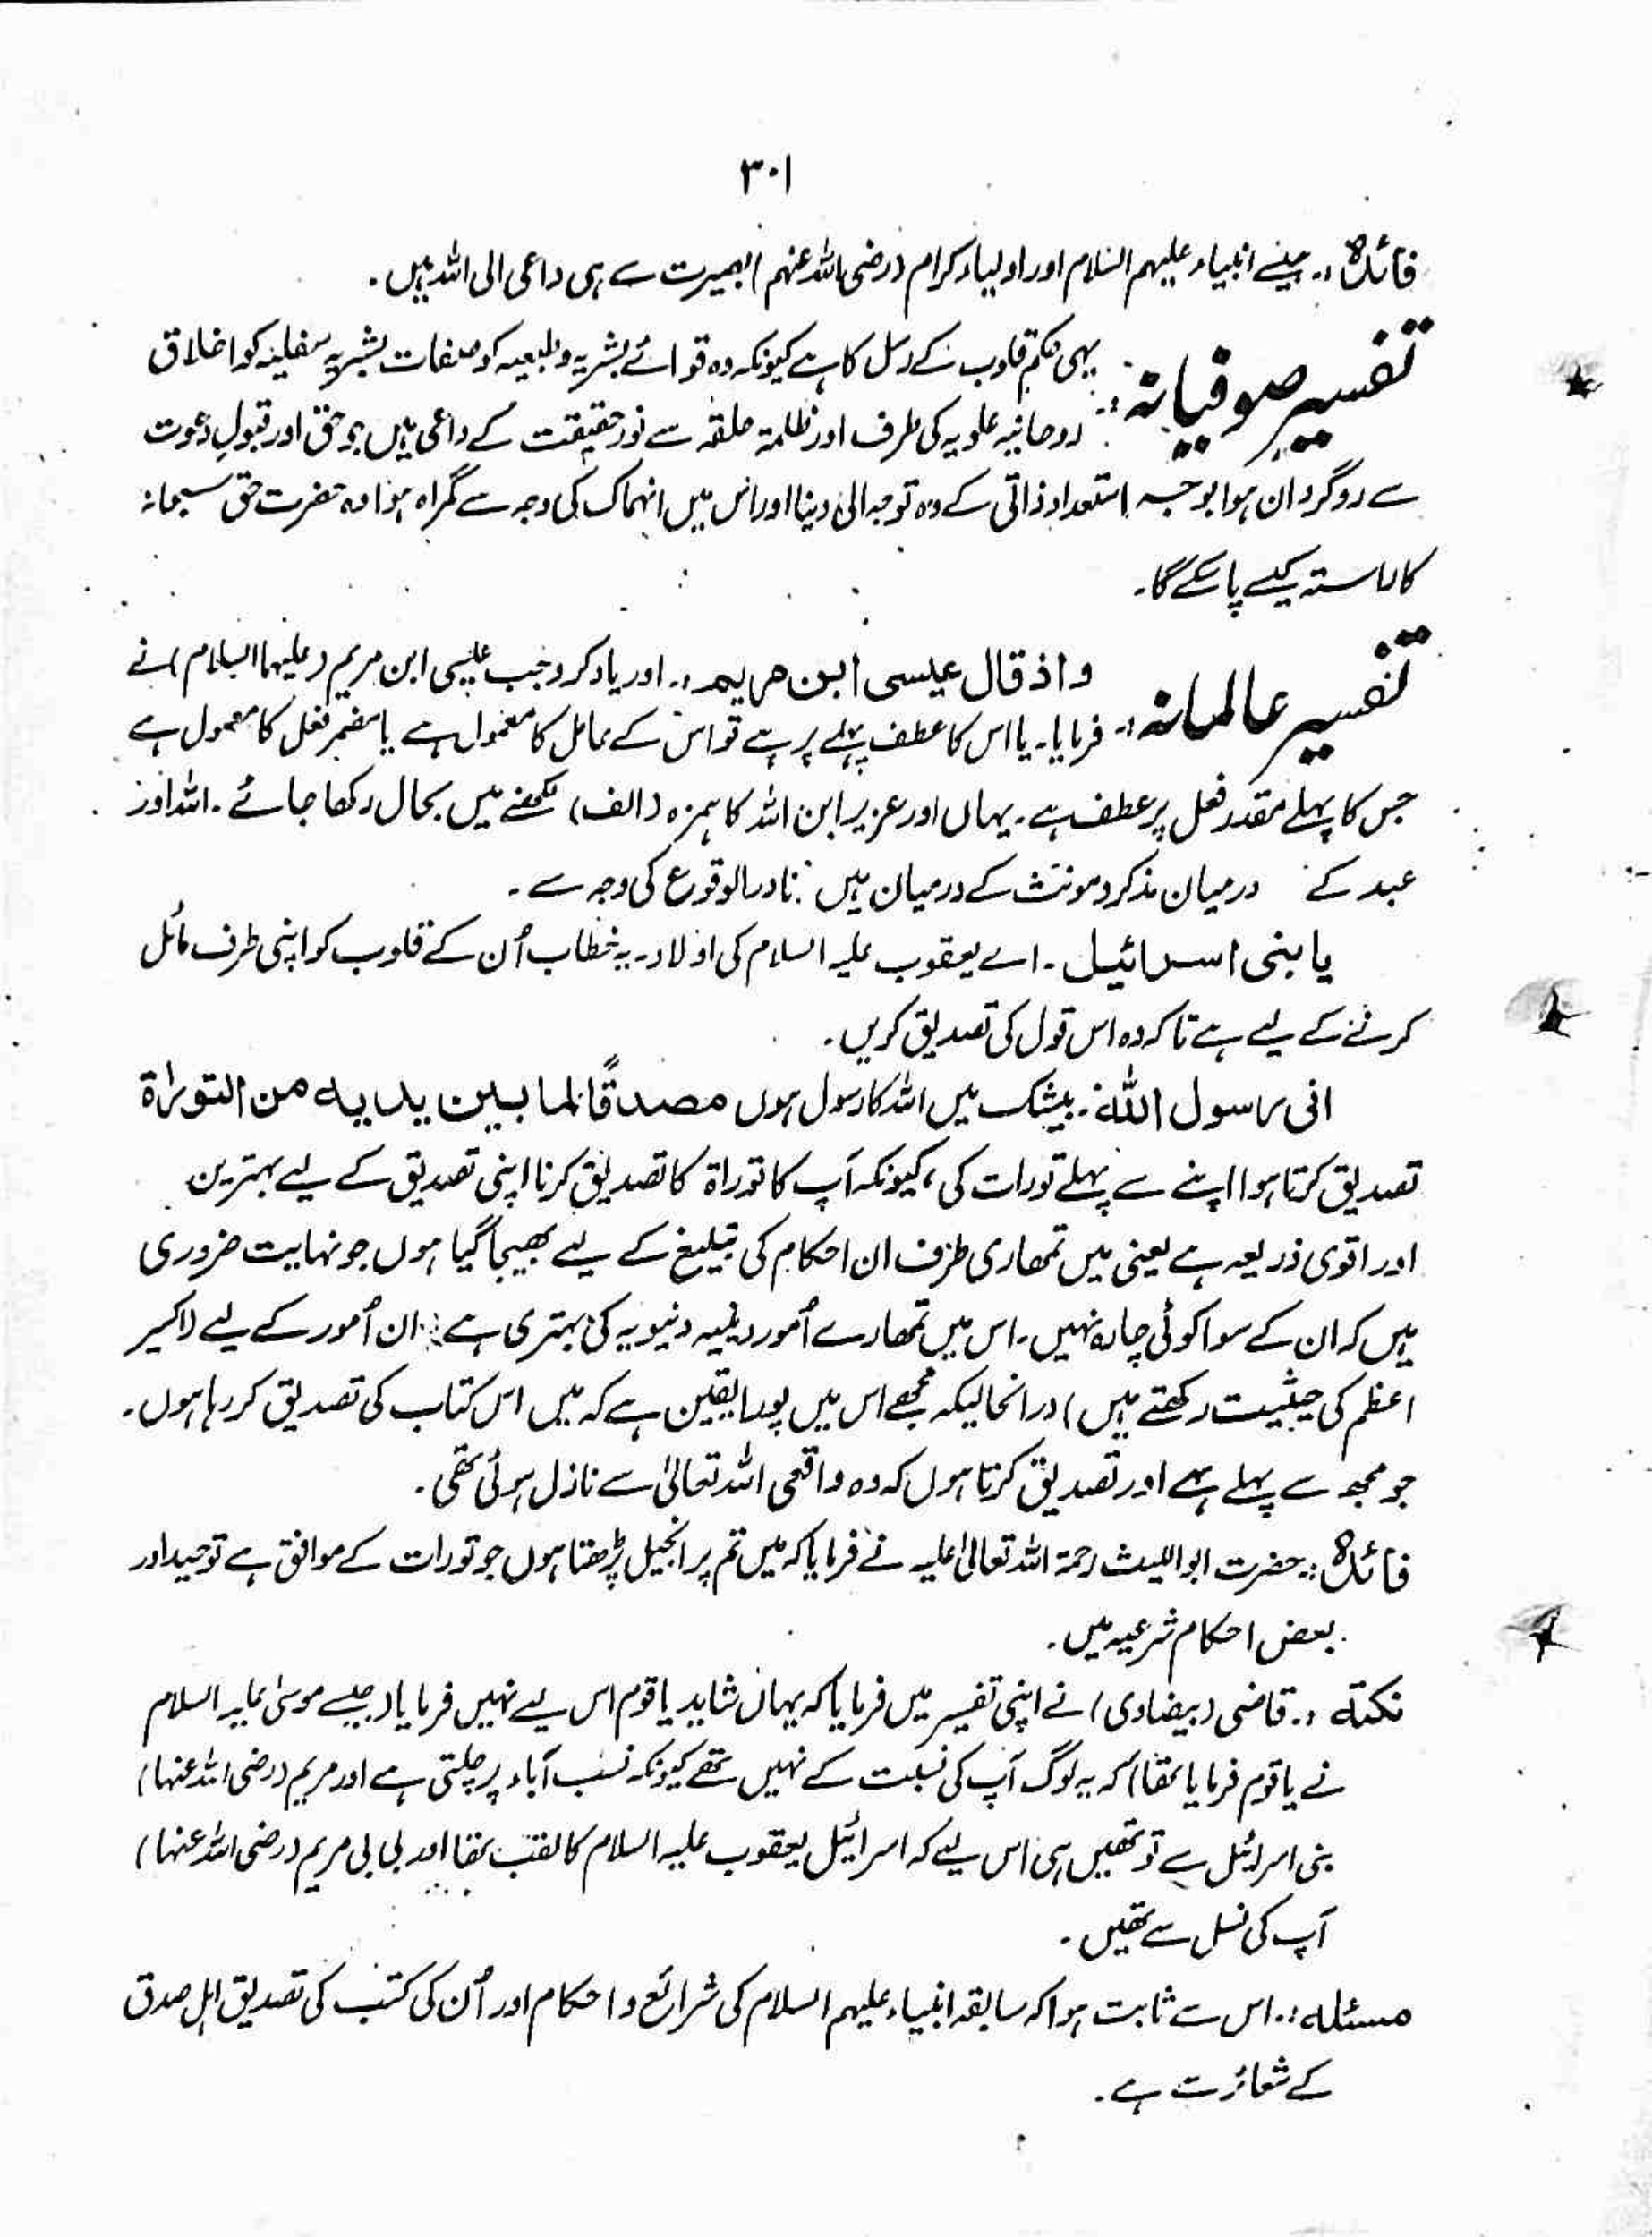 ۳۰۱
فائدہ :۔ جیسے انبیاء علیہم السلام اور اولیاء کرام (رضی اللہ عنہم) بصیرت سے ہی داعی الی اللہ ہیں۔
تفسیر صوفیانہ :۔ یہی حکم قلوب کے رسل کا ہے کیونکہ وہ قوائے بشریہ و طبعیہ کو صفات بشریہ سفلیہ کو اخلاق
روحانیہ علویہ کی طرف اور ظلمۃ خلقیہ سے نور حقیقت کے داعی ہیں جو حق اور قبولِ دعوت
سے روگردان ہوا بوجہ استعداد ذاتی کے وہ توجہ الی دنیا اور اس میں انہماک کی وجہ سے گمراہ ہوا وہ حضرت حق سبحانہ
کا راستہ کیسے پا سکے گا۔
تفسیر عالمانہ :۔ واذ قال عیسی ابن مریم :۔ اور یاد کرو جب عیسی ابن مریم (علیہما السلام) نے
فرمایا۔ یا اس کا عطف پہلے پر ہے تو اس کے عامل کا معمول ہے یا مضمر فعل کا معمول ہے
جس کا پہلے مقدر فعل پر عطف ہے۔ یہاں اور عزیر ابن اللہ کا ہمزہ (الف) لکھنے میں بحال رکھا جائے۔ اللہ اور
عبد کے درمیان مذکر و مونث کے درمیان ہیں نادر الوقوع کی وجہ سے۔
یا بنی اسرائیل۔ اے یعقوب علیہ السلام کی اولاد۔ یہ خطاب اُن کے قلوب کو اپنی طرف مائل
کرنے کے لیے ہے تاکہ وہ اس قول کی تصدیق کریں۔
انی رسول اللہ۔ بیشک میں اللہ کا رسول ہوں مصدقًا لما بین یدیہ من التوراۃ
تصدیق کرتا ہوا اپنے سے پہلے تورات کی، کیونکہ آپ کا توراۃ کا تصدیق کرنا اپنی تصدیق کے لیے بہترین
اور اقوی ذریعہ ہے یعنی میں تمھاری طرف ان احکام کی تبلیغ کے لیے بھیجا گیا ہوں جو نہایت ضروری
ہیں کہ ان کے سوا کوئی چارہ نہیں۔ اس میں تمھارے اُمور دینیہ دنیویہ کی بہتری ہے۔ ان اُمور کے لیے (اکسیر
اعظم کی حیثیت رکھتے ہیں) درانحالیکہ مجھے اس میں پورا یقین ہے کہ میں اس کتاب کی تصدیق کر رہا ہوں۔
جو مجھ سے پہلے ہے اور تصدیق کرتا ہوں کہ وہ واقعی اللہ تعالیٰ سے نازل ہوئی تھی۔
فائدہ :۔ حضرت ابو اللیث رحمۃ اللہ تعالیٰ علیہ نے فرمایا کہ میں تم پر انجیل پڑھتا ہوں جو تورات کے موافق ہے توحید اور
بعض احکام شرعیہ میں۔
نکتہ :۔ قاضی (بیضاوی) نے اپنی تفسیر میں فرمایا کہ یہاں شاید یا قوم اس لیے نہیں فرمایا (جیسے موسیٰ علیہ السلام
نے یا قوم فرمایا تھا) کہ یہ لوگ آپ کی نسبت کے نہیں تھے کیونکہ نسب آباء پر چلتی ہے اور مریم (رضی اللہ عنہا)
بنی اسرائیل سے تو تھیں ہی اس لیے کہ اسرائیل یعقوب علیہ السلام کا لقب تھا اور بی بی مریم (رضی اللہ عنہا)
آپ کی نسل سے تھیں۔
مسئلہ :۔ اس سے ثابت ہوا کہ سابقہ انبیاء علیہم السلام کی شرائع و احکام اور اُن کی کتب کی تصدیق اہل صدق
کے شعائر سے ہے۔